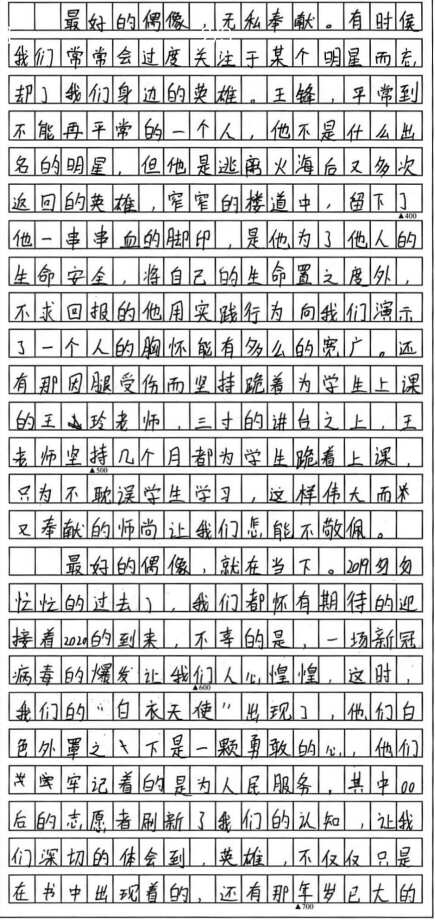 最好的偶像，无私奉献。有时侯
我们常常会过度关注于某个明星而忘
却了我们身边的英雄。王锋，平常到
不能再平常的一个人，他不是什么出
名的明星，但他是逃离火海后又多次
返回的英雄，窄窄的楼道中，留下了
▲400
他一串串血的脚印，是他为了他人的
生命安全，将自己的生命置之度外，
不求回报的他用实践行为向我们演示
了一个人的胸怀能有多么的宽广。还
有那因腿受伤而坚持跪着为学生上课
的王玲老师，三寸的讲台之上，王
老师坚持几个月都为学生跪着上课，
▲500
只为不耽误学生学习，这样伟大而
又奉献的师尚让我们怎能不敬佩。
最好的偶像，就在当下。2019匆匆
忙忙的过去了，我们都怀有期待的迎
接着2020的到来，不幸的是，一场新冠
病毒的爆发让我们人心惶惶，这时，
▲600
我们的“白衣天使”出现了，他们白
色外罩之下是一颗勇敢的心，他们
牢记着的是为人民服务，其中00
后的志愿者刷新了我们的认知，让我
们深切的体会到，英雄，不仅仅只是
在书中出现着的，还有那年岁已大的
▲700